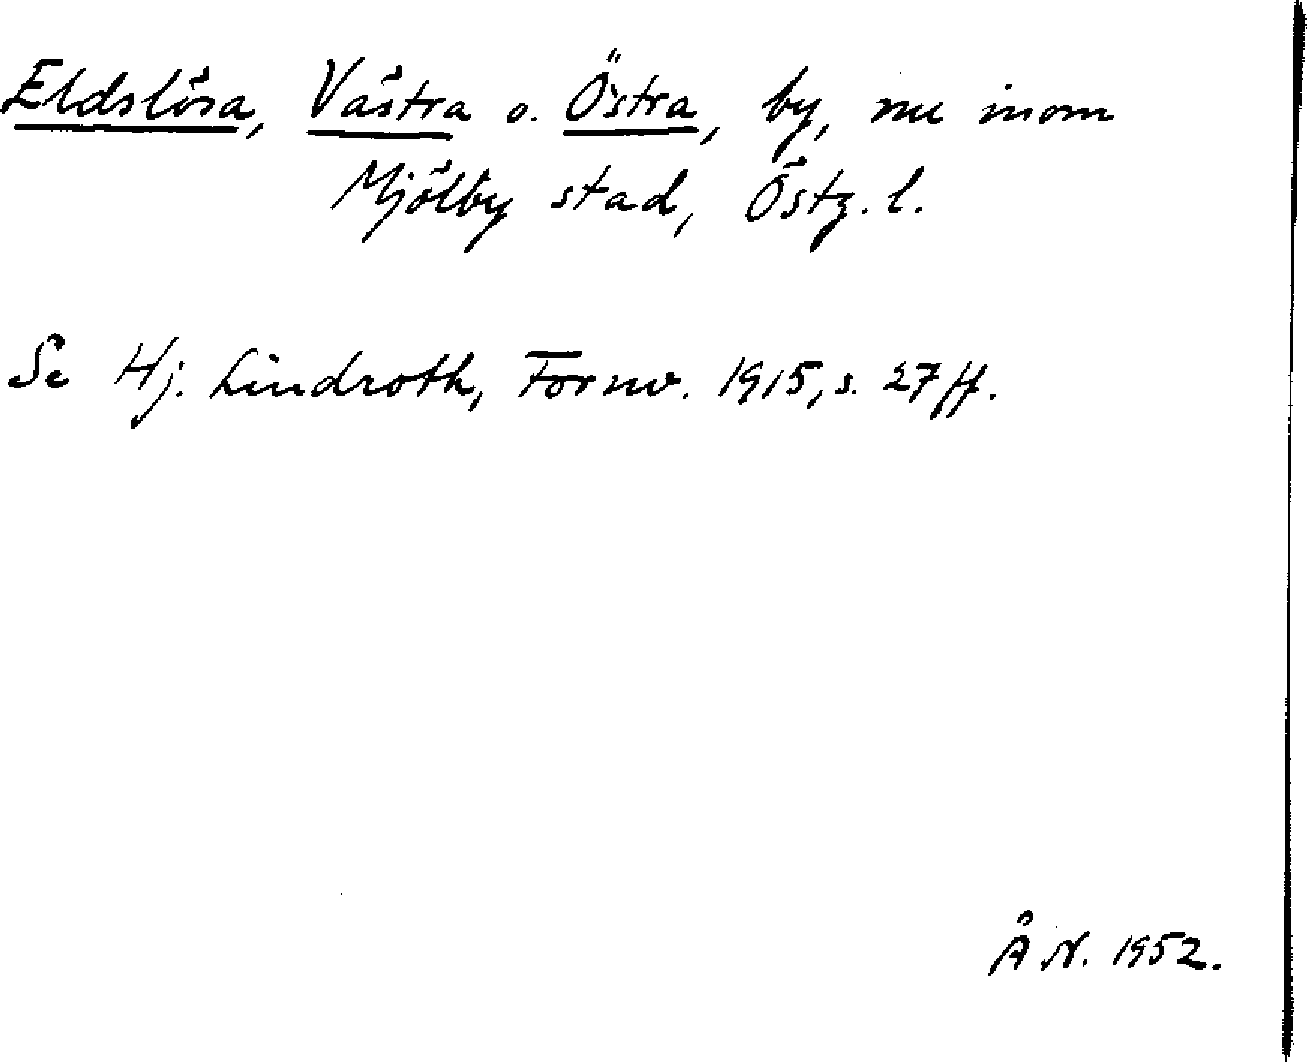 Eldslösa, Västra o. Östra, by, nu inom
Mjölby stad, Östg. l.
Se Hj. Lindroth, Fornv. 1915, s. 27 ff.
Å N. 1952.